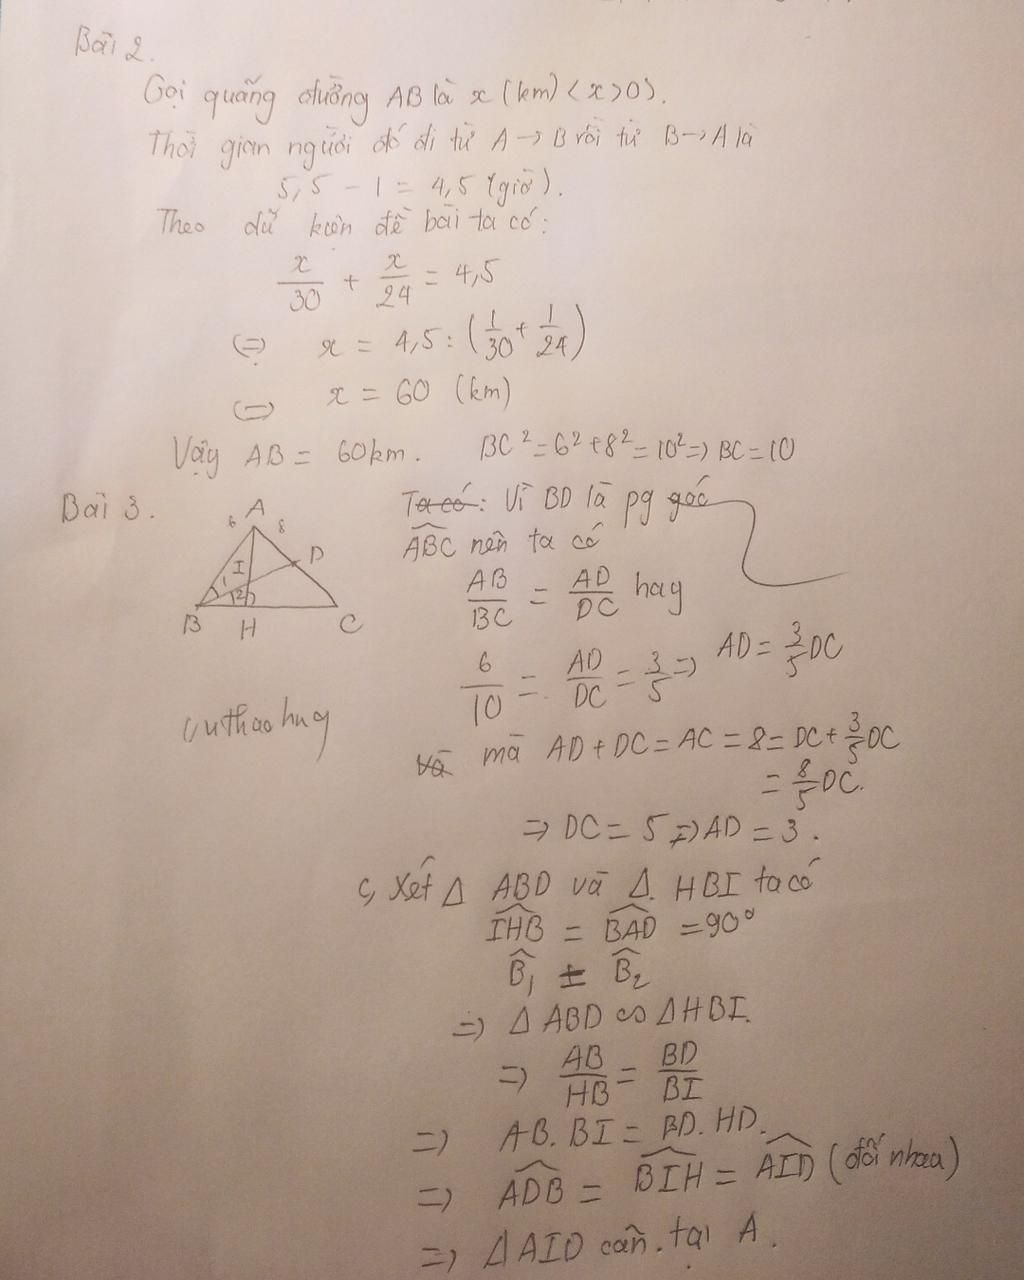 Bài 2.
Gọi quãng đường AB là x (km) < x > 0 >.
Thời gian người đó đi từ A → B rồi từ B → A là
5,5 - 1 = 4,5 (giờ).
Theo dữ kiện đề bài ta có:
x/30 + x/24 = 4,5
(=) x = 4,5 : (1/30 + 1/24)
(=) x = 60 (km)
Vậy AB = 60km. BC² = 6² + 8² = 10² => BC = 10
Bài 3.
A
6 8
I D
1 2
B H C
Ta có: Vì BD là pg góc
ABC nên ta có
AB/BC = AD/DC hay
6/10 = AD/DC = 3/5 => AD = 3/5 DC
Và mà AD + DC = AC = 8 = DC + 3/5 DC
= 8/5 DC.
=> DC = 5 => AD = 3.
cuthaohuy
c, Xét Δ ABD và Δ. HBI ta có
IHB = BAD = 90°
B₁ = B₂
=> Δ ABD ∽ Δ HBI.
=> AB/HB = BD/BI
=> AB. BI = BD. HD.
=> ADB = BIH = AID (đối nhau)
=> Δ AID cân. tại A.